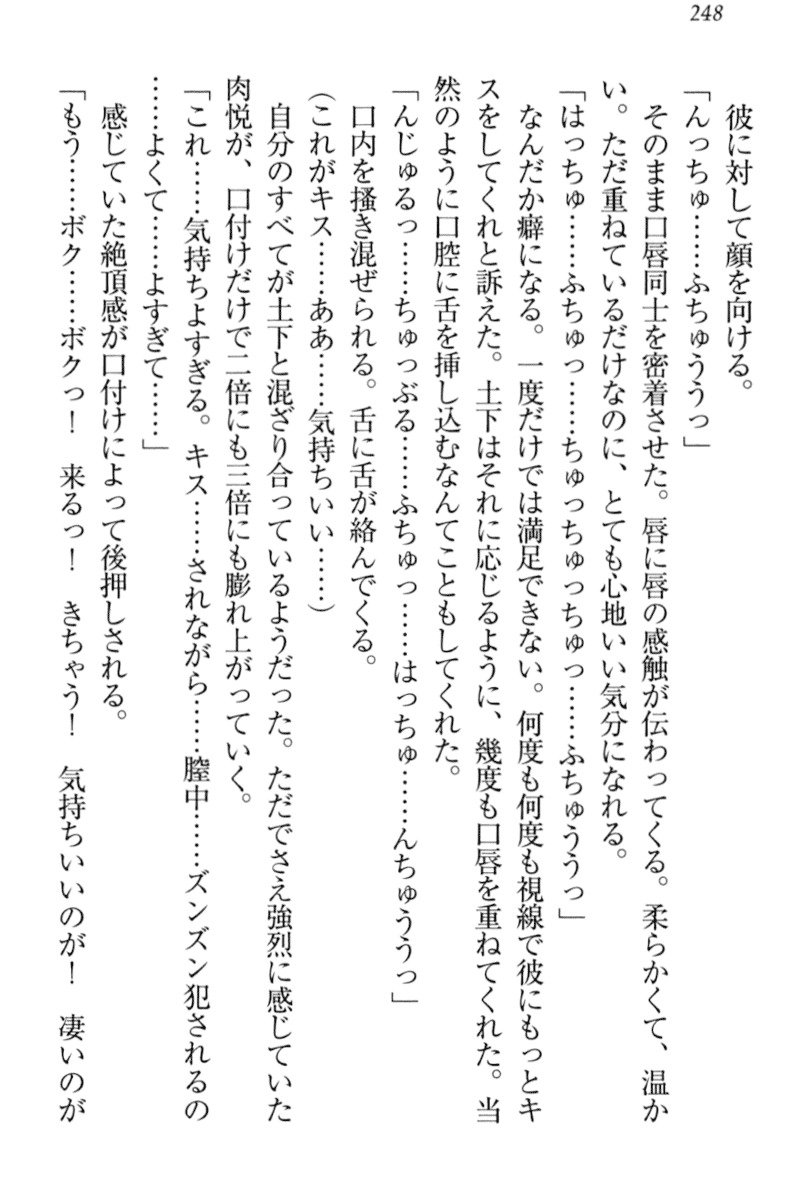 248
彼に対して顔を向ける。
「んっちゅ……ふちゅううっ」
そのまま口唇同士を密着させた。唇に唇の感触が伝わってくる。柔らかくて、温か
い。ただ重ねているだけなのに、とても心地いい気分になれる。
「はっちゅ……ふちゅっ……ちゅっちゅっちゅっ……ふちゅううっ」
なんだか癖になる。一度だけでは満足できない。何度も何度も視線で彼にもっとキ
スをしてくれと訴えた。土下はそれに応じるように、幾度も口唇を重ねてくれた。当
然のように口腔に舌を挿し込むなんてこともしてくれた。
「んじゅるっ……ちゅっぶる……ふちゅっ……はっちゅ……んちゅううっ」
口内を掻き混ぜられる。舌に舌が絡んでくる。
（これがキス……ああ……気持ちいい……）
自分のすべてが土下と混ざり合っているようだった。ただでさえ強烈に感じていた
肉悦が、口付けだけで二倍にも三倍にも膨れ上がっていく。
「これ……気持ちよすぎる。キス……されながら……膣中……ズンズン犯されるの
……よくて……よすぎて……」
感じていた絶頂感が口付けによって後押しされる。
「もう……ボク……ボクっ！　来るっ！　きちゃう！　気持ちいいのが！　凄いのが